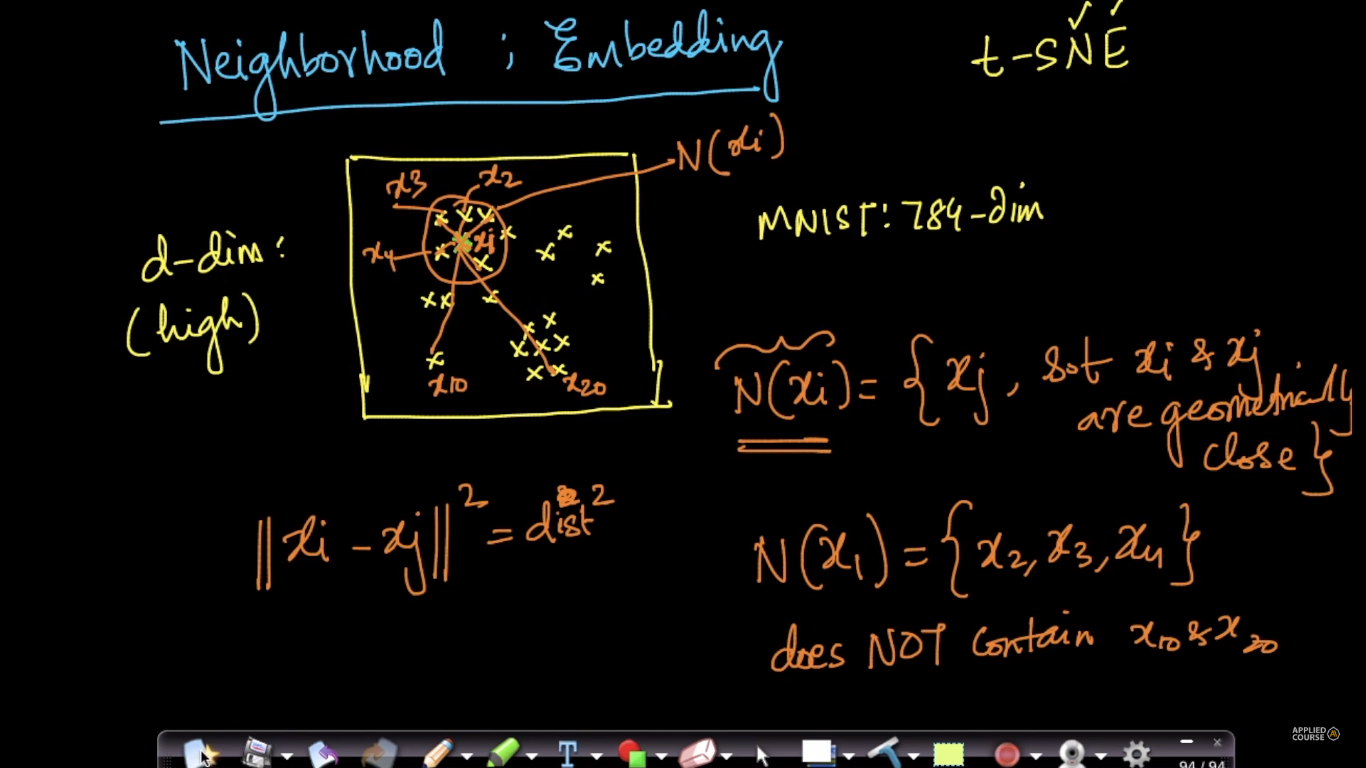 Neighborhood ; Embedding
t-SNE
N(xi)
x3
x2
xi
x4
d-dim:
(high)
MNIST: 784-dim
x10
x20
N(xi) = {xj, s.t xi & xj
are geometrically
close}
||xi - xj||² = dist²
N(x₁) = {x₂, x₃, x₄}
does NOT contain x₁₀ & x₂₀
T
94 / 94
APPLIED
COURSE